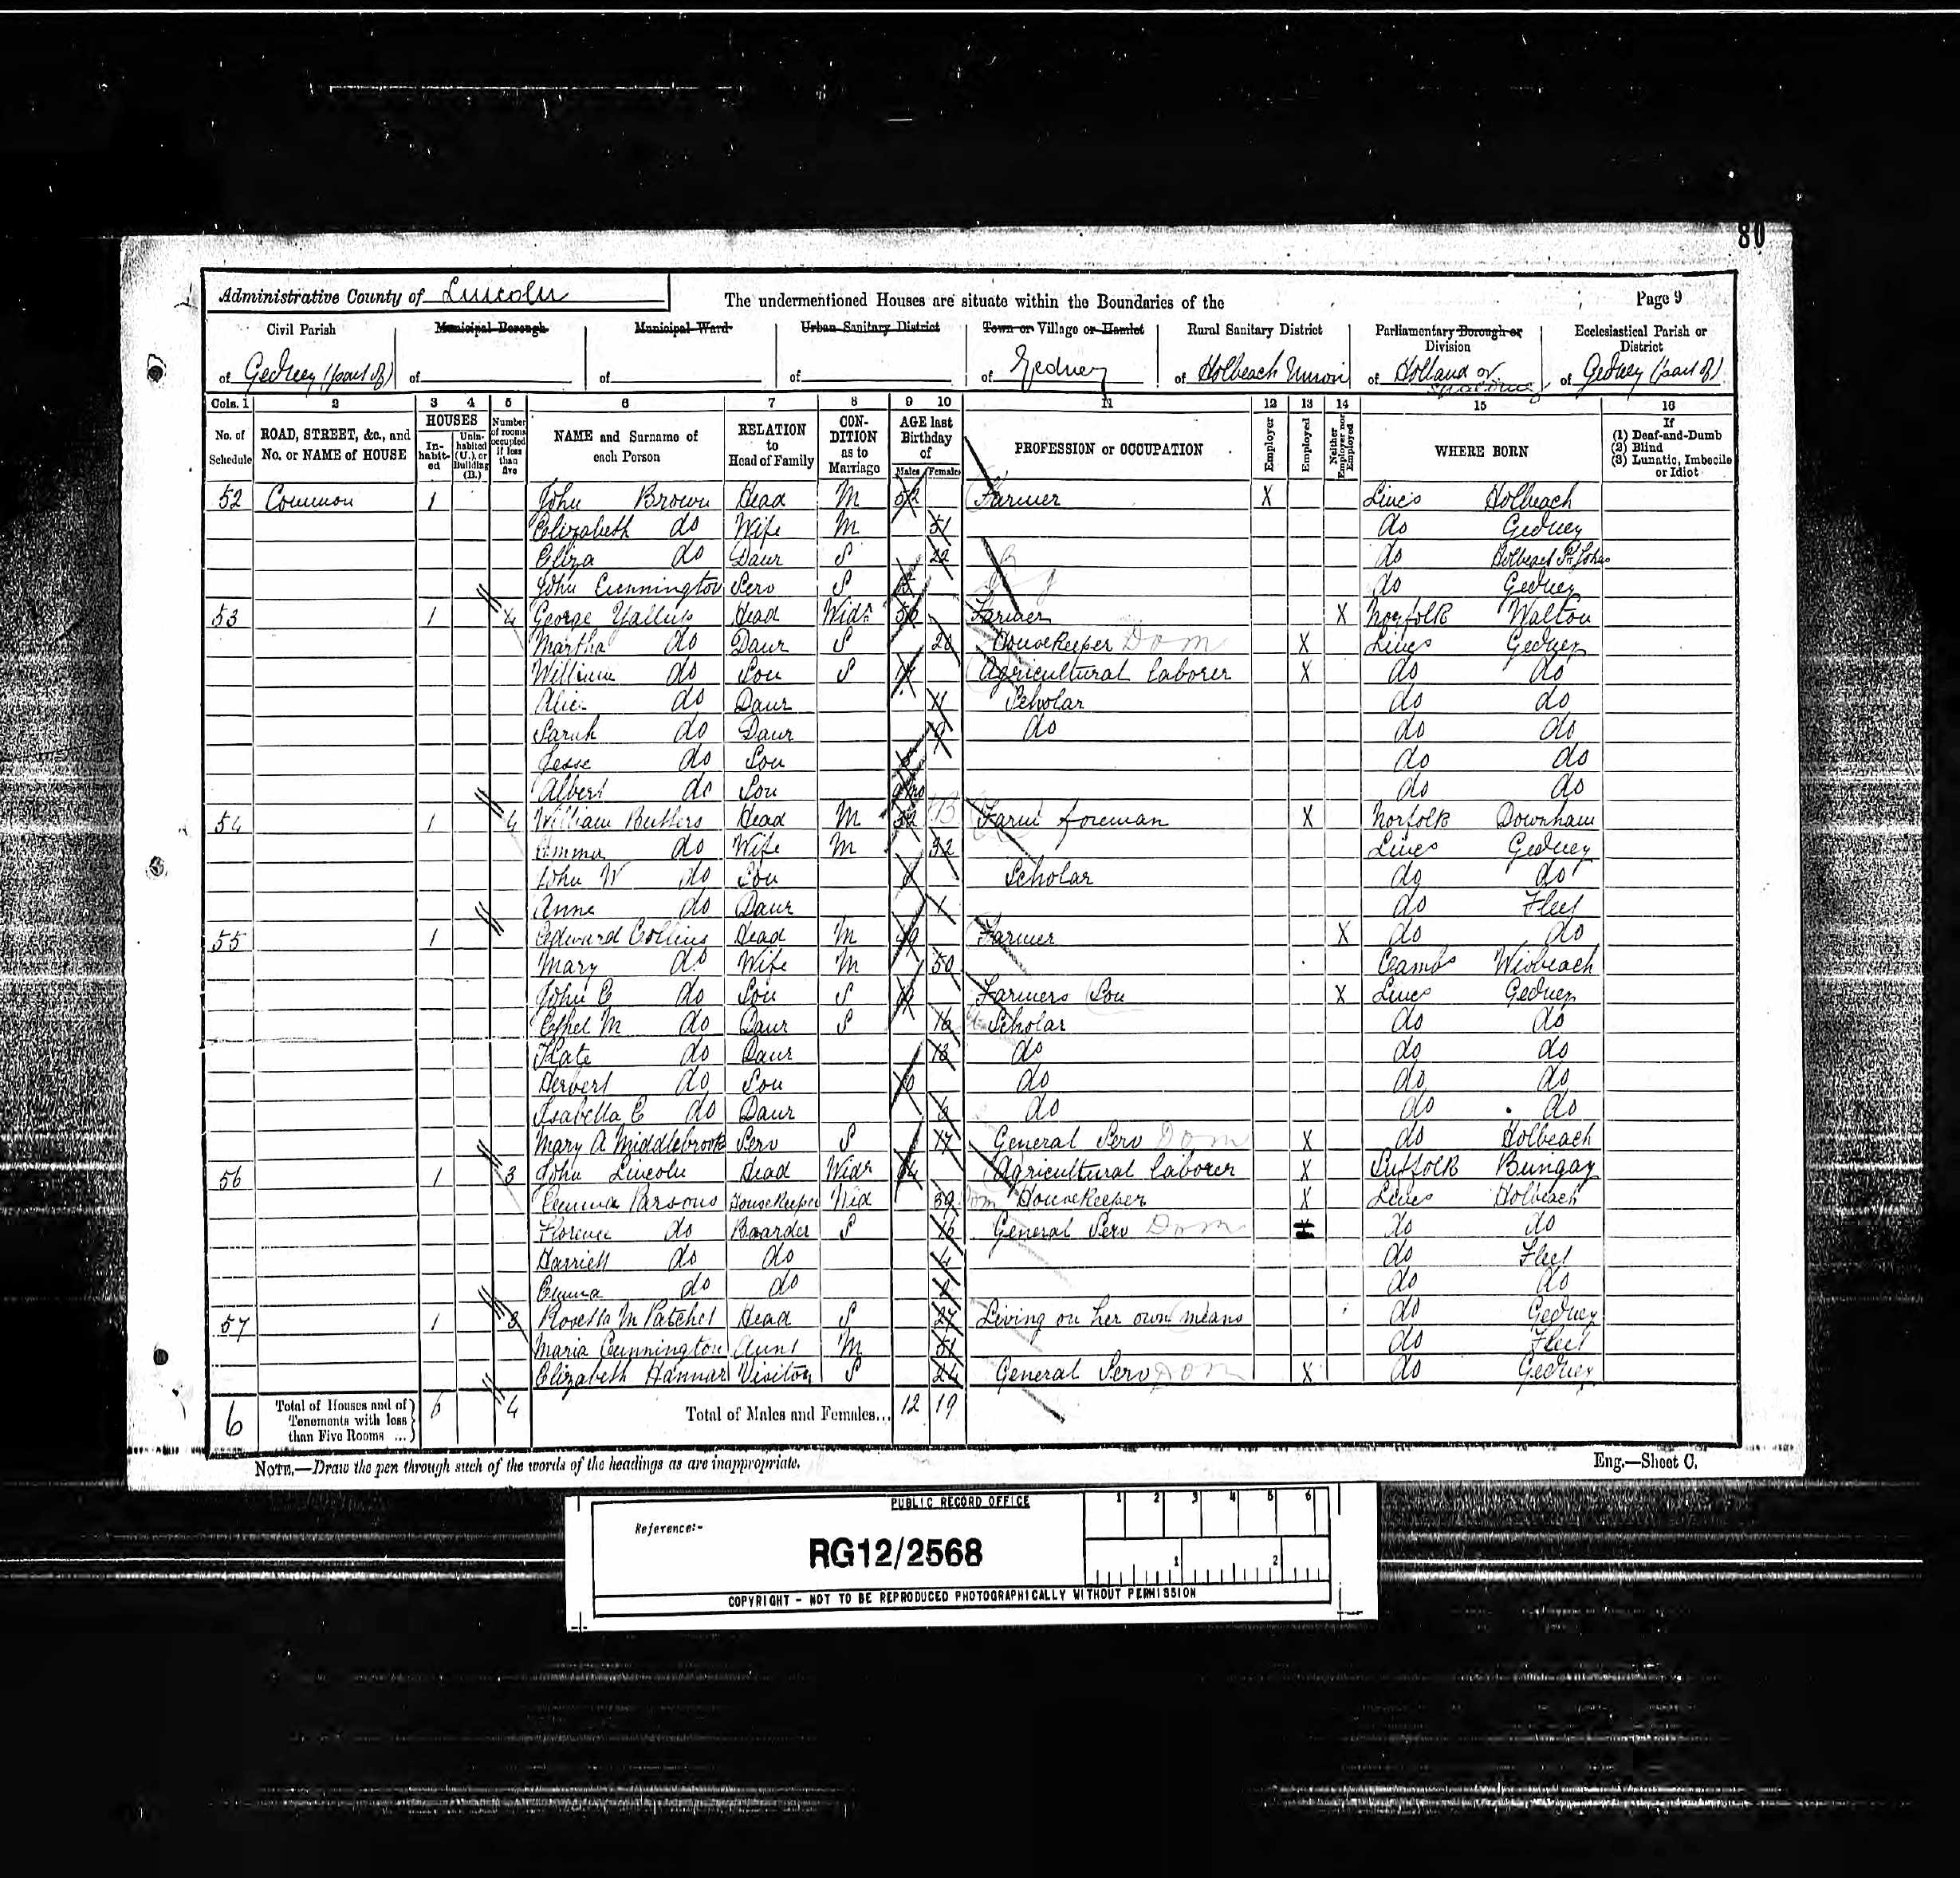 80
Administrative County of Lincoln The undermentioned Houses are situate within the Boundaries of the Page 9
Civil Parish Municipal Borough Municipal Ward Urban Sanitary District Town or Village or Hamlet Rural Sanitary District Parliamentary Borough or Division Ecclesiastical Parish or District
of Gedney (part of) of of of of Gedney of Holbeach Union of Holland or Spalding of Gedney (part of)
Cols. 1 2 3 4 5 6 7 8 9 10 11 12 13 14 15 16
No. of Schedule ROAD, STREET, &c., and No. or NAME of HOUSE HOUSES Inhabited Uninhabited (U.), or Building (B.) Number of rooms occupied if less than five NAME and Surname of each Person RELATION to Head of Family CONDITION as to Marriage AGE last Birthday of Males Females PROFESSION or OCCUPATION Employer Employed Neither Employer nor Employed WHERE BORN If (1) Deaf-and-Dumb (2) Blind (3) Lunatic, Imbecile or Idiot
52 Common 1 John Brown Head M 52 Farmer X Lincs Holbeach
Elizabeth do Wife M 51 do Gedney
Eliza do Daur S 22 do Holbeach St Johns
John Cunnington Serv S do Gedney
53 1 4 George Yallup Head Widr Farmer X Norfolk Walton
Martha do Daur S 20 Housekeeper Dom X Lincs Gedney
William do Son S Agricultural laborer X do do
Alice do Daur 11 Scholar do do
Sarah do Daur do do do
Jesse do Son do do
Albert do Son do do
54 1 4 William Butters Head M 32 Farm foreman X Norfolk Downham
Emma do Wife M 32 Lincs Gedney
John W do Son Scholar do do
Anne do Daur 1 do Fleet
55 1 Edward Collins Head M 49 Farmer X do do
Mary do Wife M 50 Cambs Wisbeach
John E do Son S Farmers Son X Lincs Gedney
Ethel M do Daur S 16 Scholar do do
Kate do Daur 13 do do do
Herbert do Son 10 do do do
Isabella E do Daur 6 do do do
Mary A Middlebrook Serv S 17 General Serv Dom X do Holbeach
56 1 3 John Lincoln Head Widr 64 Agricultural laborer X Suffolk Bungay
Emma Parsons Housekeeper Wid 39 Dom Housekeeper X Lincs Holbeach
Florence do Boarder S 16 General Serv Dom X do do
Harriett do do 4 do Fleet
Emma do do do do
57 1 3 Rosetta M Patchet Head S 27 Living on her own means do Gedney
Maria Cunnington Aunt M 51 do Fleet
Elizabeth Hannar Visitor S General Serv Dom X do Gedney
6 Total of Houses and of Tenements with less than Five Rooms ... 6 4 Total of Males and Females... 12 19
NOTE.—Draw the pen through such of the words of the headings as are inappropriate. Eng.—Sheet C.
PUBLIC RECORD OFFICE 1 2 3 4 5 6
Reference:-
RG12/2568 1 2
COPYRIGHT - NOT TO BE REPRODUCED PHOTOGRAPHICALLY WITHOUT PERMISSION